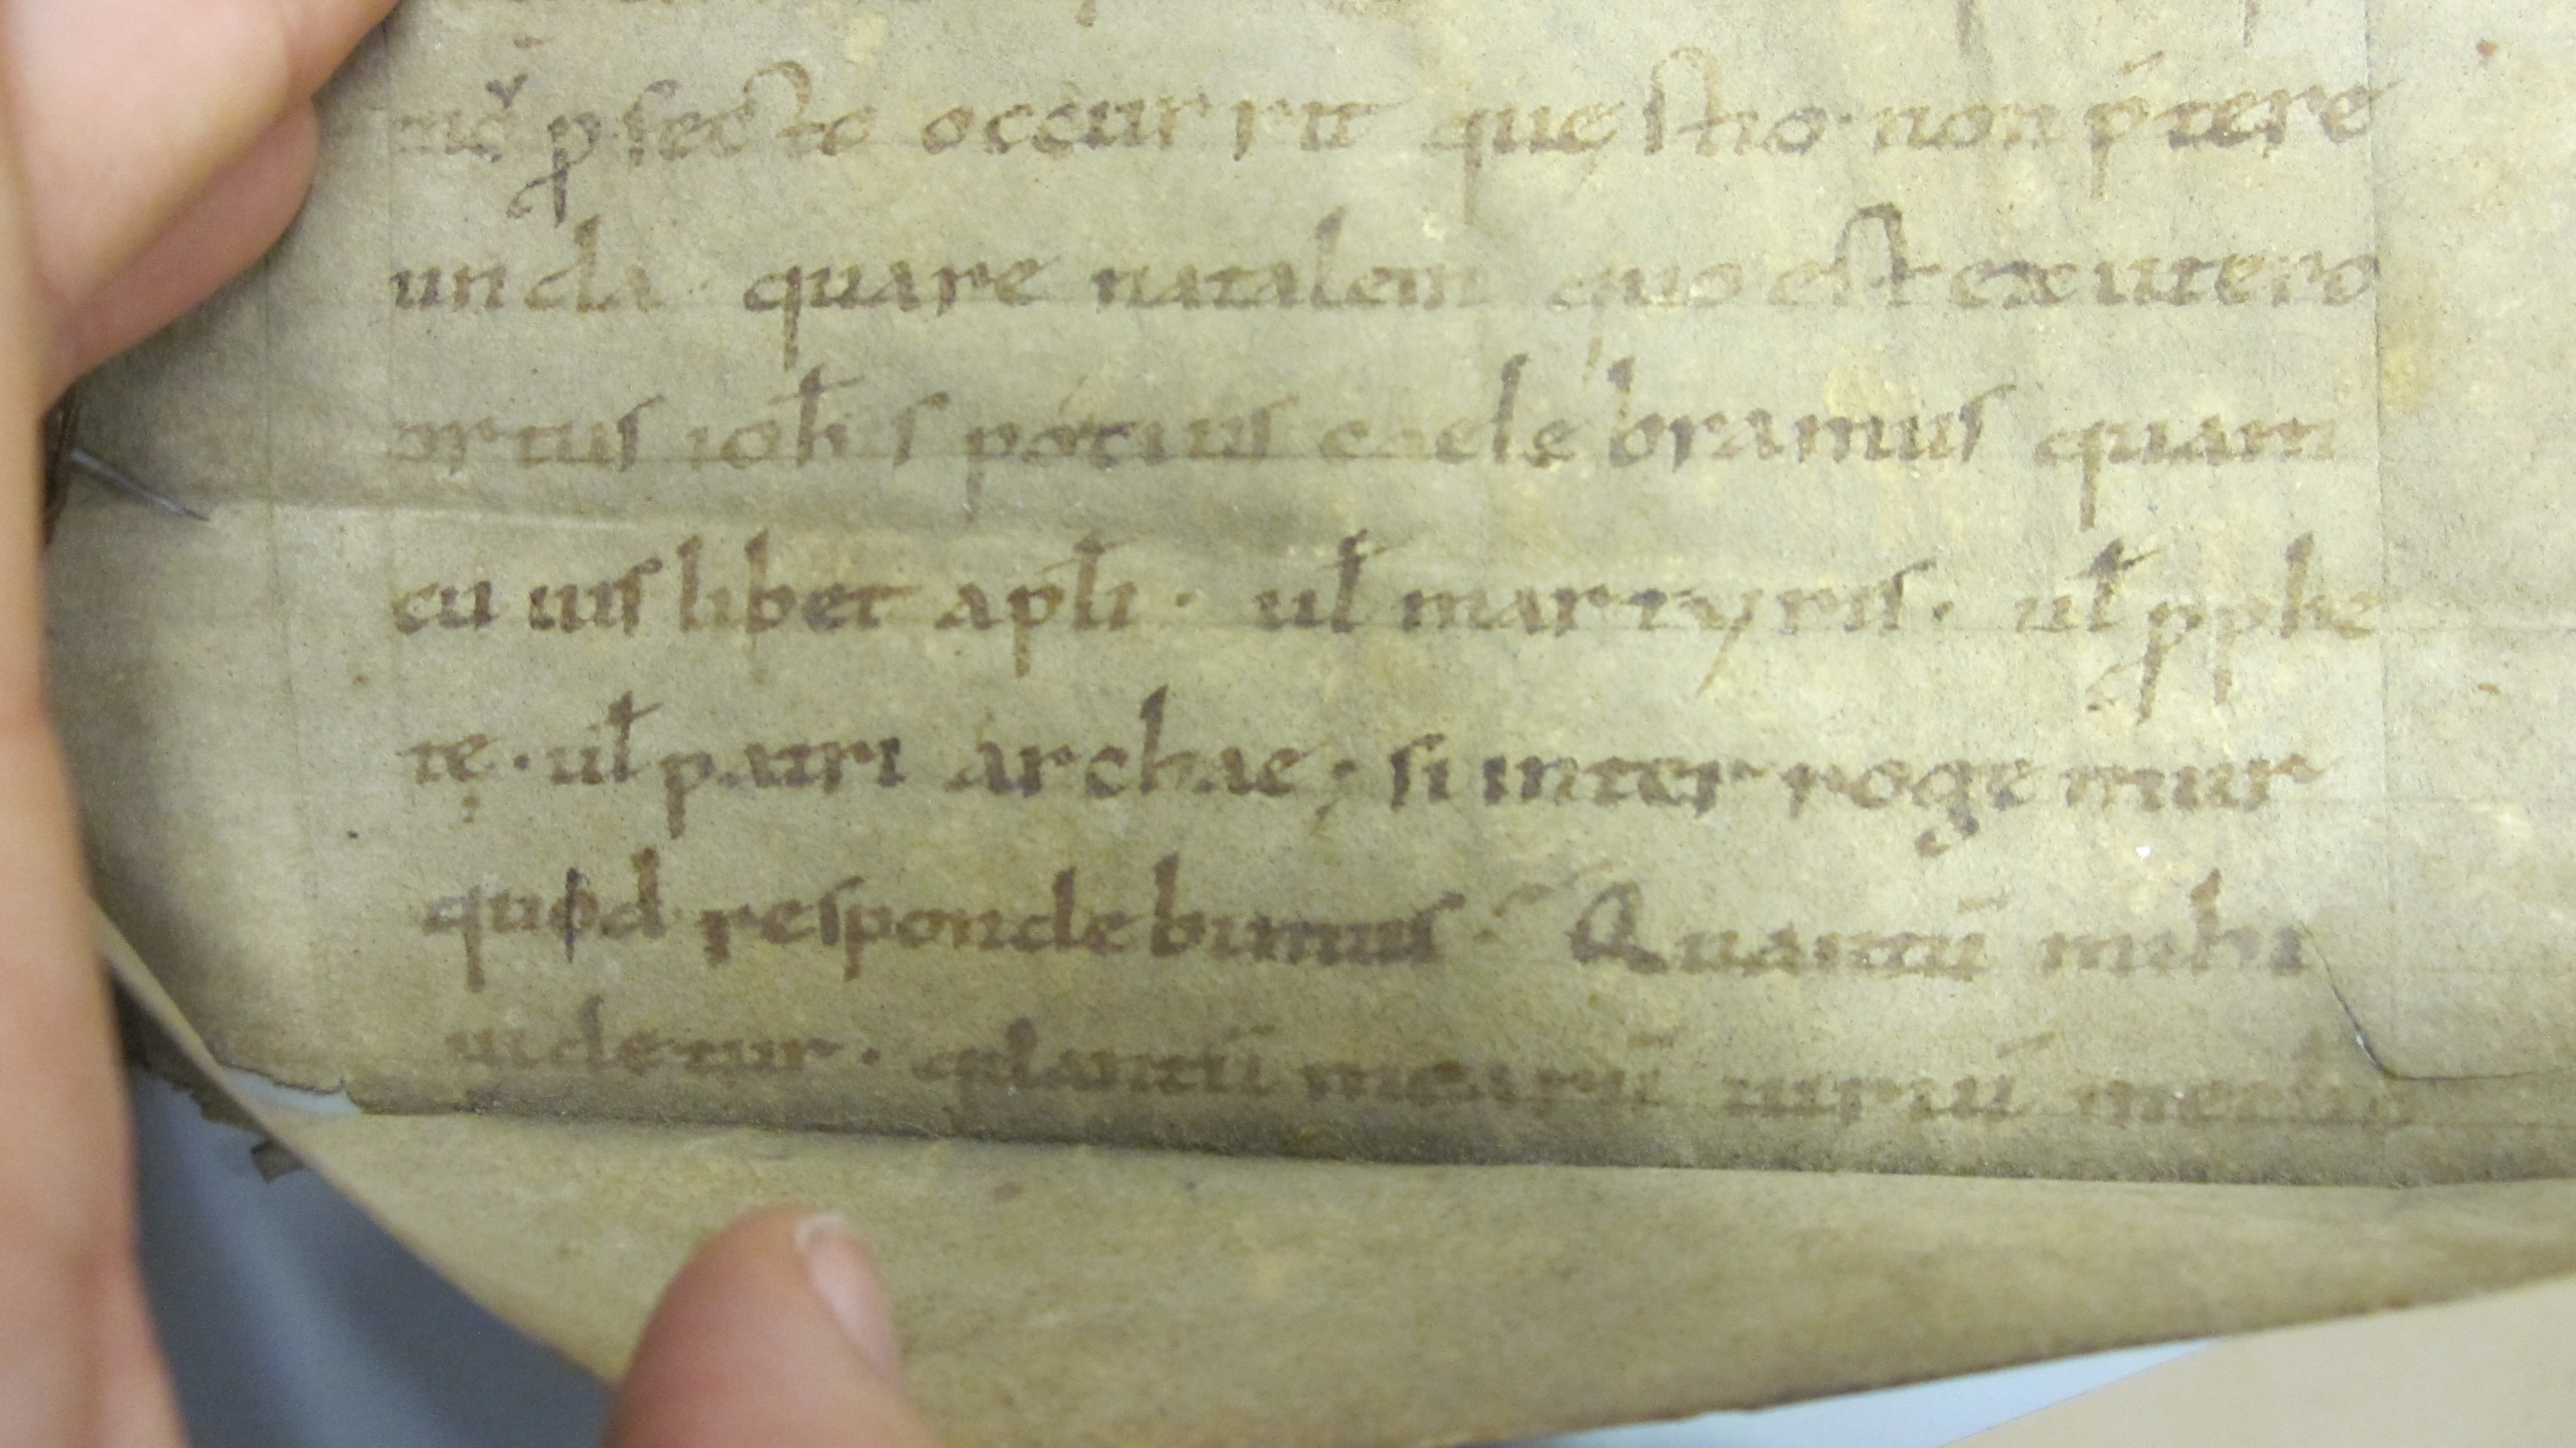 p̱fecto occurrit quęstio · non p̄tere
unda · quare natalem quo est ex utero
ortus ioħis potius caelębramus quam
cuiuslibet apłi · uł martyris · uł p̱phe
tę · uł patriarchae ; si interrogemur
quod respondebimus · Quantū mihi
uidetur · quantū